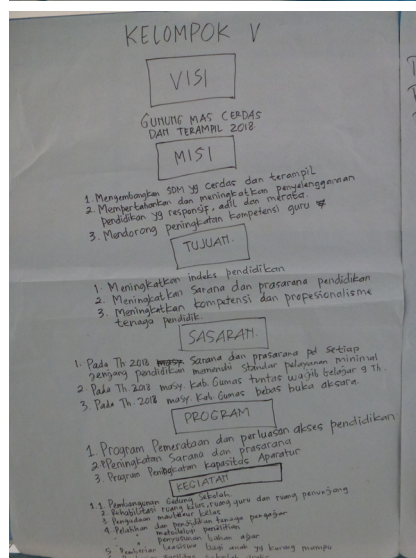 KELOMPOK V
VISI
GUNUNG MAS CERDAS
DAN TERAMPIL 2018
MISI
1. Mengembangkan SDM yg cerdas dan terampil
2. Mempertahankan dan meningkatkan penyelenggaraan
pendidikan yg responsif, adil dan merata.
3. Mendorong peningkatan kompetensi guru
TUJUAN.
1. Meningkatkan indeks pendidikan
2. Meningkatkan sarana dan prasarana pendidikan
3. Meningkatkan kompetensi dan profesionalisme
tenaga pendidik.
SASARAN.
1. Pada Th 2018 sarana dan prasarana pd setiap
jenjang pendidikan memenuhi standar pelayanan minimal
2. Pada Th. 2018 masy. Kab. Gumas tuntas wajib belajar 9 Th.
3. Pada Th. 2018 masy. Kab Gumas bebas buka aksara.
PROGRAM
1. Program Pemerataan dan perluasan akses pendidikan
2. Peningkatan Sarana dan prasarana
3. Program Peningkatan kapasitas Aparatur
KEGIATAN
1. Pembangunan Gedung Sekolah.
2. Rehabilitasi ruang kelas, ruang guru dan ruang penunjang
3. Pengadaan meubeleur kelas
4. Pelatihan dan pendidikan tenaga pengajar
metodologi penelitian
penyusunan bahan ajar
5. Pemberian beasiswa bagi anak yg kurang mampu